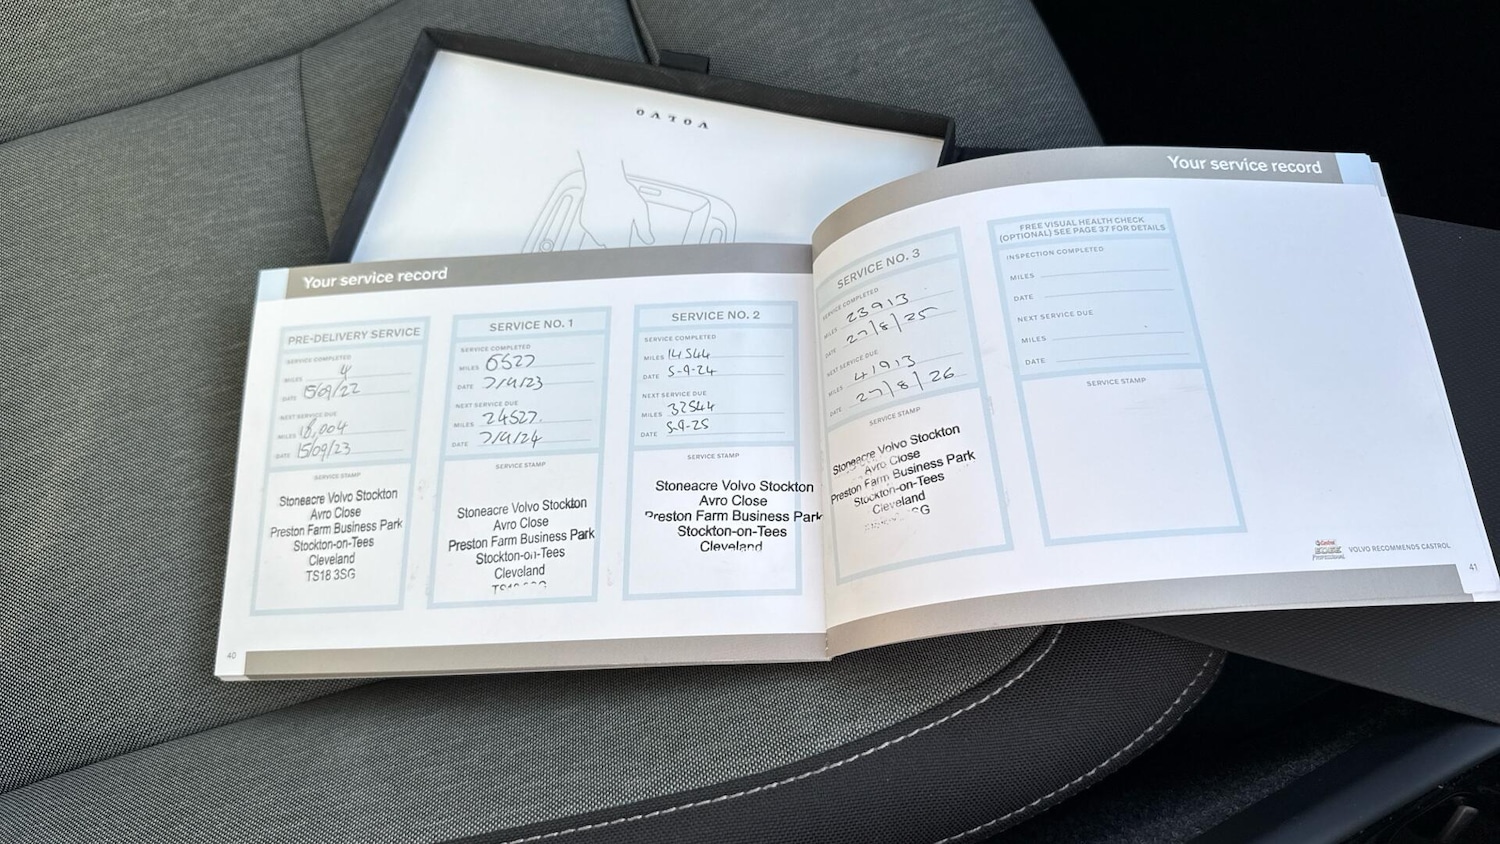 VOLVO
Your service record
PRE-DELIVERY SERVICE
SERVICE COMPLETED
MILES 4
DATE 15/09/22
NEXT SERVICE DUE
MILES 18,004
DATE 15/09/23
SERVICE STAMP
Stoneacre Volvo Stockton
Avro Close
Preston Farm Business Park
Stockton-on-Tees
Cleveland
TS18 3SG
SERVICE NO. 1
SERVICE COMPLETED
MILES 6527
DATE 7/9/23
NEXT SERVICE DUE
MILES 24527
DATE 7/9/24
SERVICE STAMP
Stoneacre Volvo Stockton
Avro Close
Preston Farm Business Park
Stockton-on-Tees
Cleveland
SERVICE NO. 2
SERVICE COMPLETED
MILES 14544
DATE 5-9-24
NEXT SERVICE DUE
MILES 32544
DATE 5-9-25
SERVICE STAMP
Stoneacre Volvo Stockton
Avro Close
Preston Farm Business Park
Stockton-on-Tees
Cleveland
40
Your service record
SERVICE NO. 3
SERVICE COMPLETED
MILES 23913
DATE 27/8/25
NEXT SERVICE DUE
MILES 41913
DATE 27/8/26
SERVICE STAMP
Stoneacre Volvo Stockton
Avro Close
Preston Farm Business Park
Stockton-on-Tees
Cleveland
FREE VISUAL HEALTH CHECK
(OPTIONAL) SEE PAGE 37 FOR DETAILS
INSPECTION COMPLETED
MILES
DATE
NEXT SERVICE DUE
MILES
DATE
SERVICE STAMP
Castrol
EDGE
Professional
VOLVO RECOMMENDS CASTROL
41